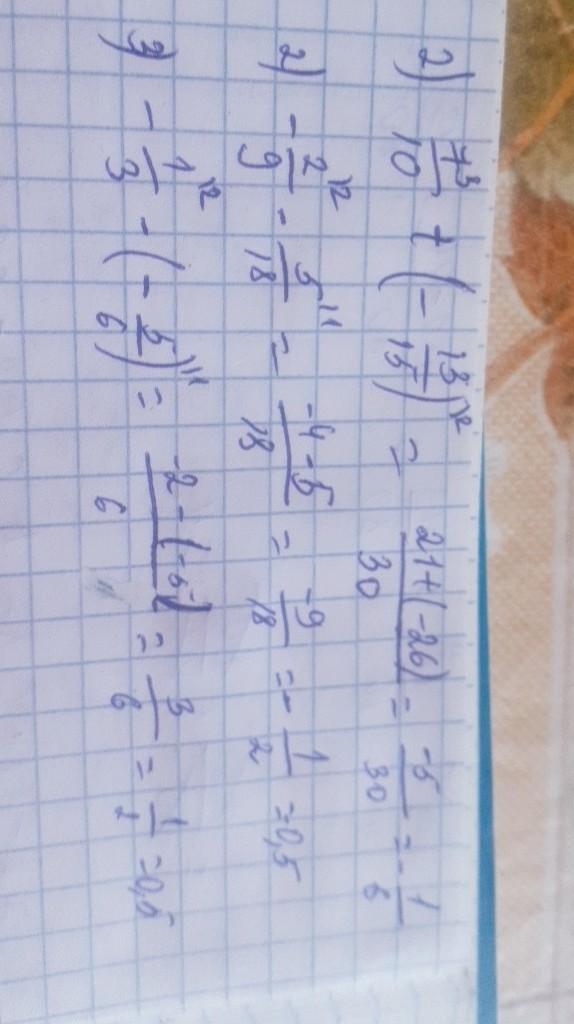 2) 7/10 ^3 + (- 13/15)^\2 = 21+(-26)/30 = -5/30 = - 1/6
2) - 2/9 ^\2 - 5/18 ^\1 = -4-5/18 = -9/18 = - 1/2 = 0,5
3) - 1/3 ^\2 - (- 5/6)^\1 = -2-(-5)/6 = 3/6 = 1/2 = 0,5